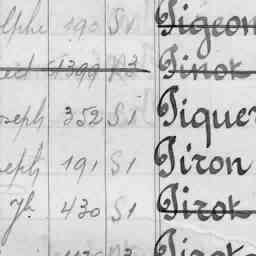 lphe 190 S1 Pigeon
1399 N3 Pinot
oseph 352 S1 Piquer
seph 191 S1 Piron
Jh 430 S1 Pirot